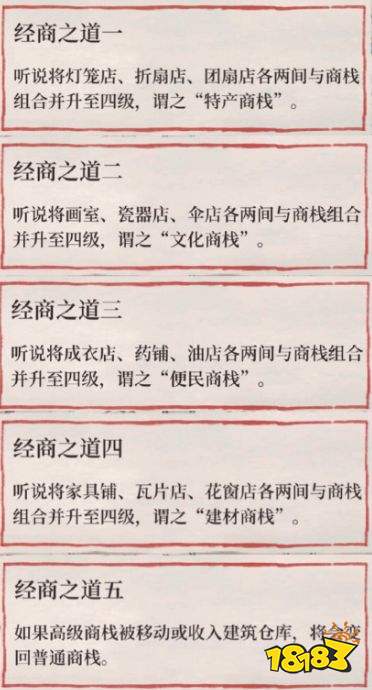 经商之道一
听说将灯笼店、折扇店、团扇店各两间与商栈
组合并升至四级，谓之“特产商栈”。
经商之道二
听说将画室、瓷器店、伞店各两间与商栈组合
并升至四级，谓之“文化商栈”。
经商之道三
听说将成衣店、药铺、油店各两间与商栈组合
并升至四级，谓之“便民商栈”。
经商之道四
听说将家具铺、瓦片店、花窗店各两间与商栈
组合并升至四级，谓之“建材商栈”。
经商之道五
如果高级商栈被移动或收入建筑仓库，将会变
回普通商栈。
18183